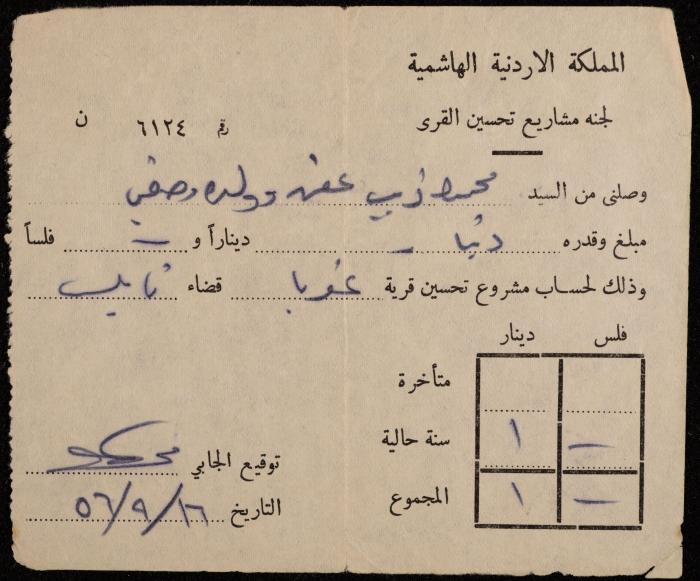 المملكة الاردنية الهاشمية
لجنه مشاريع تحسين القرى
رقم ٦١٢٤ ن
وصلنى من السيد محمد اديب وولده وصفي
مبلغ وقدره دينار — ديناراً و — فلساً
وذلك لحساب مشروع تحسين قرية قضاء نابلس
فلس دينار
متأخرة
سنة حالية ١ —
المجموع ١ —
توقيع الجابي
التاريخ ١٦/٩/٥٦